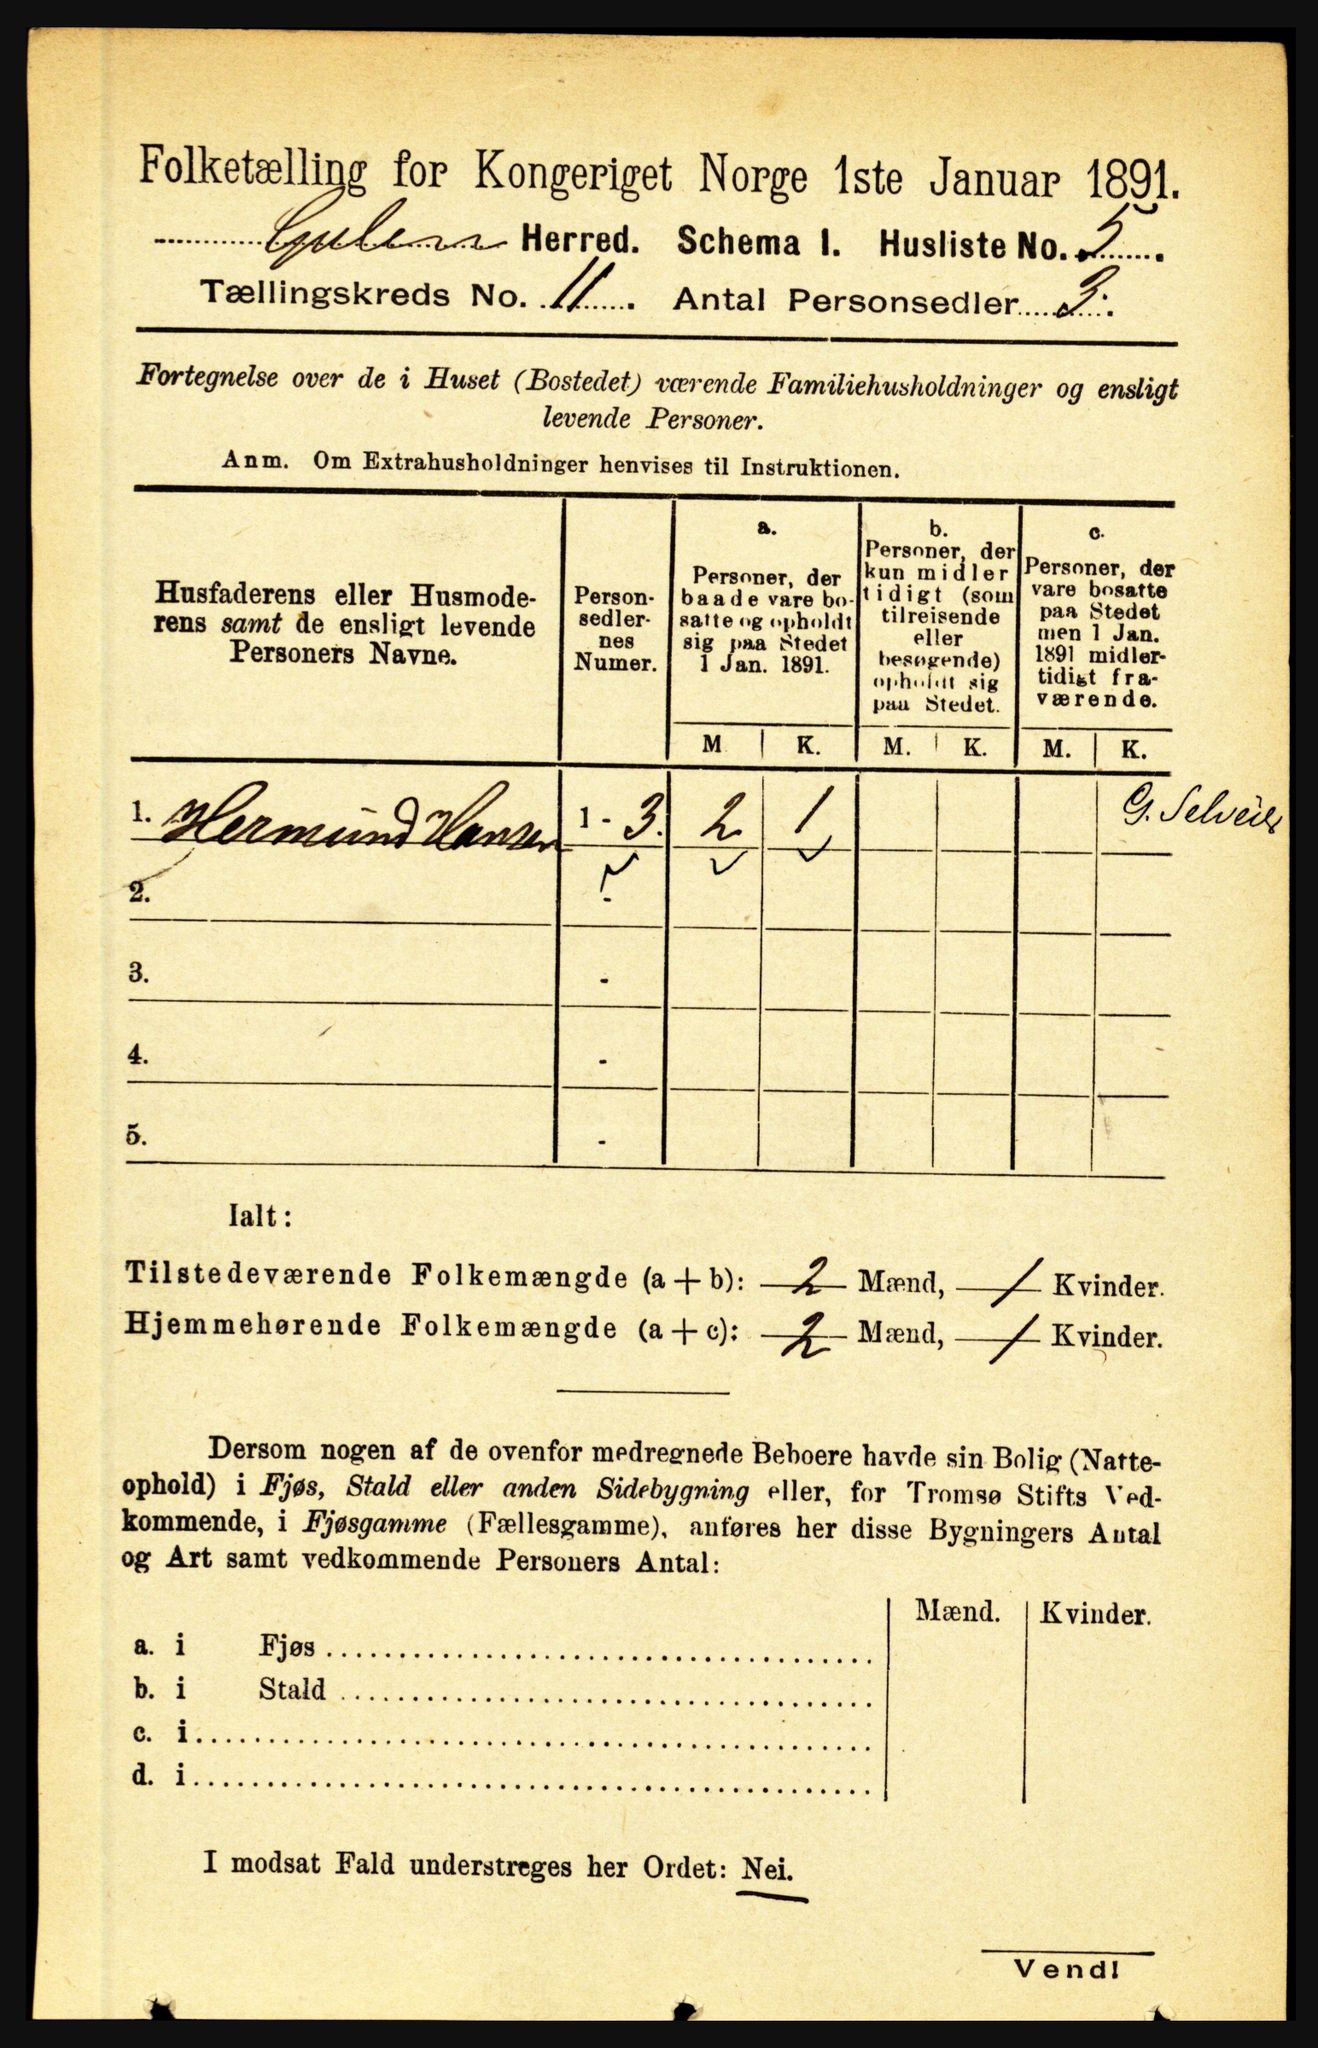 Folketælling for Kongeriget Norge 1ste Januar 1891.
Gulen Herred. Schema I. Husliste No. 5.
Tællingskreds No. 11. Antal Personsedler 3.
Fortegnelse over de i Huset (Bostedet) værende Familiehusholdninger og ensligt
levende Personer.
Anm. Om Extrahusholdninger henvises til Instruktionen.
Husfaderens eller Husmode-
rens samt de ensligt levende
Personers Navne.
Person-
sedler-
nes
Numer.
a.
Personer, der
baade vare bo-
satte og opholdt
sig paa Stedet
1 Jan. 1891.
b.
Personer, der
kun midler
tidigt (som
tilreisende
eller
besøgende)
opholdt sig
paa Stedet.
c.
Personer, der
vare bosatte
paa Stedet
men 1 Jan.
1891 midler-
tidigt fra-
værende.
M K. M. K. M. K.
1. Hermund Hansen 1 - 3. 2 1 G. Selveier
2. -
3. -
4. -
5. -
Ialt:
Tilstedeværende Folkemængde (a + b): 2 Mænd, 1 Kvinder.
Hjemmehørende Folkemængde (a + c): 2 Mænd, 1 Kvinder.
Dersom nogen af de ovenfor medregnede Beboere havde sin Bolig (Natte-
ophold) i Fjøs, Stald eller anden Sidebygning eller, for Tromsø Stifts Ved-
kommende, i Fjøsgamme (Fællesgamme), anføres her disse Bygningers Antal
og Art samt vedkommende Personers Antal:
Mænd. Kvinder.
a. i Fjøs
b. i Stald
c. i
d. i
I modsat Fald understreges her Ordet: Nei.
Vend!